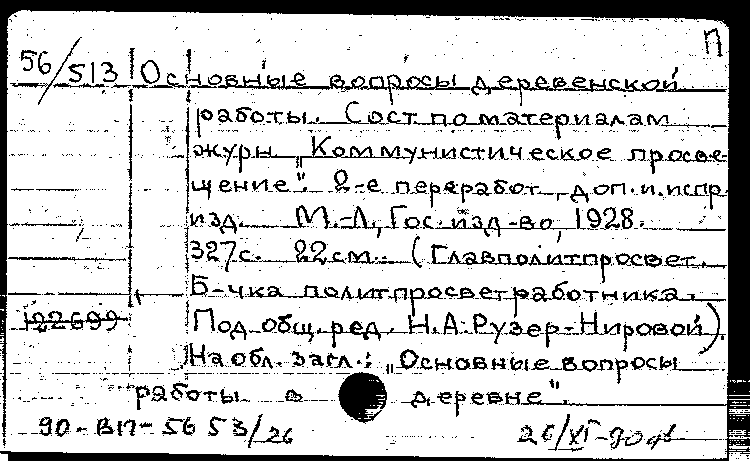 П
56/513 Основные вопросы деревенской
работы. Сост. по материалам
журн. „Коммунистическое просве-
щение". 2-е переработ., доп. и испр.
изд. М.-Л., Гос. изд-во, 1928.
327 с. 22 см. (Главполитпросвет.
Б-чка политпросветработника.
122699 Под общ. ред. Н.А. Рузер-Нировой).
На обл. загл.: „Основные вопросы
работы в деревне".
90-ВП-56 53/26 26/XI-90